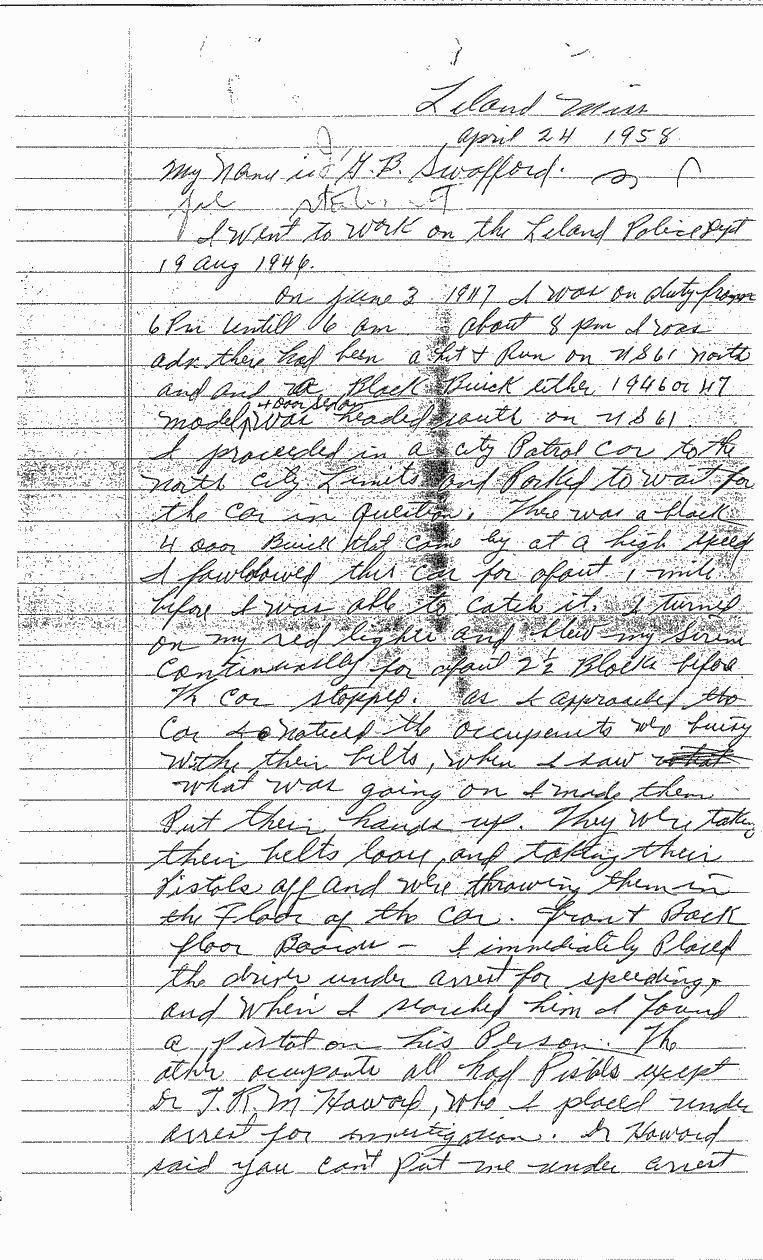 Leland Miss
April 24 1958
My Name is G. B. Swafford.
I went to work on the Leland Police Dept
19 Aug 1946.
On June 3 1947 I was on duty from
6 Pm untill 6 am about 8 pm I was
adv. there had been a hit & Run on US 61 North
and and a Black Buick either 1946 or 47
model, 4 Door Sedan was headed south on US 61
I proceeded in a city Patrol car to the
North City Limits and Parked to wait for
the car in question. There was a black
4 door Buick that come by at a high speed
I fowlowed this car for about 1 mile
before I was able to catch it. I turned
on my red lights and blew my Siren
continuously for about 2½ Blocks before
Th car stopped. as I approached the
car I noticed the occupents were buisy
with their belts, when I saw what
what was going on I made them
Put their hands up. They were taking
their belts loose, and taking their
Pistols off and were throwing them in
the Floor of the car. Front & Back
floor Boards - I immediately Placed
the driver under arrest for speeding,
and when I searched him I found
a Pistol on his Person. The
other occupants all had Pistols except
Dr T. R. M Howard, who I placed under
arrest for investigation. Dr Howard
said you can't Put me under arrest